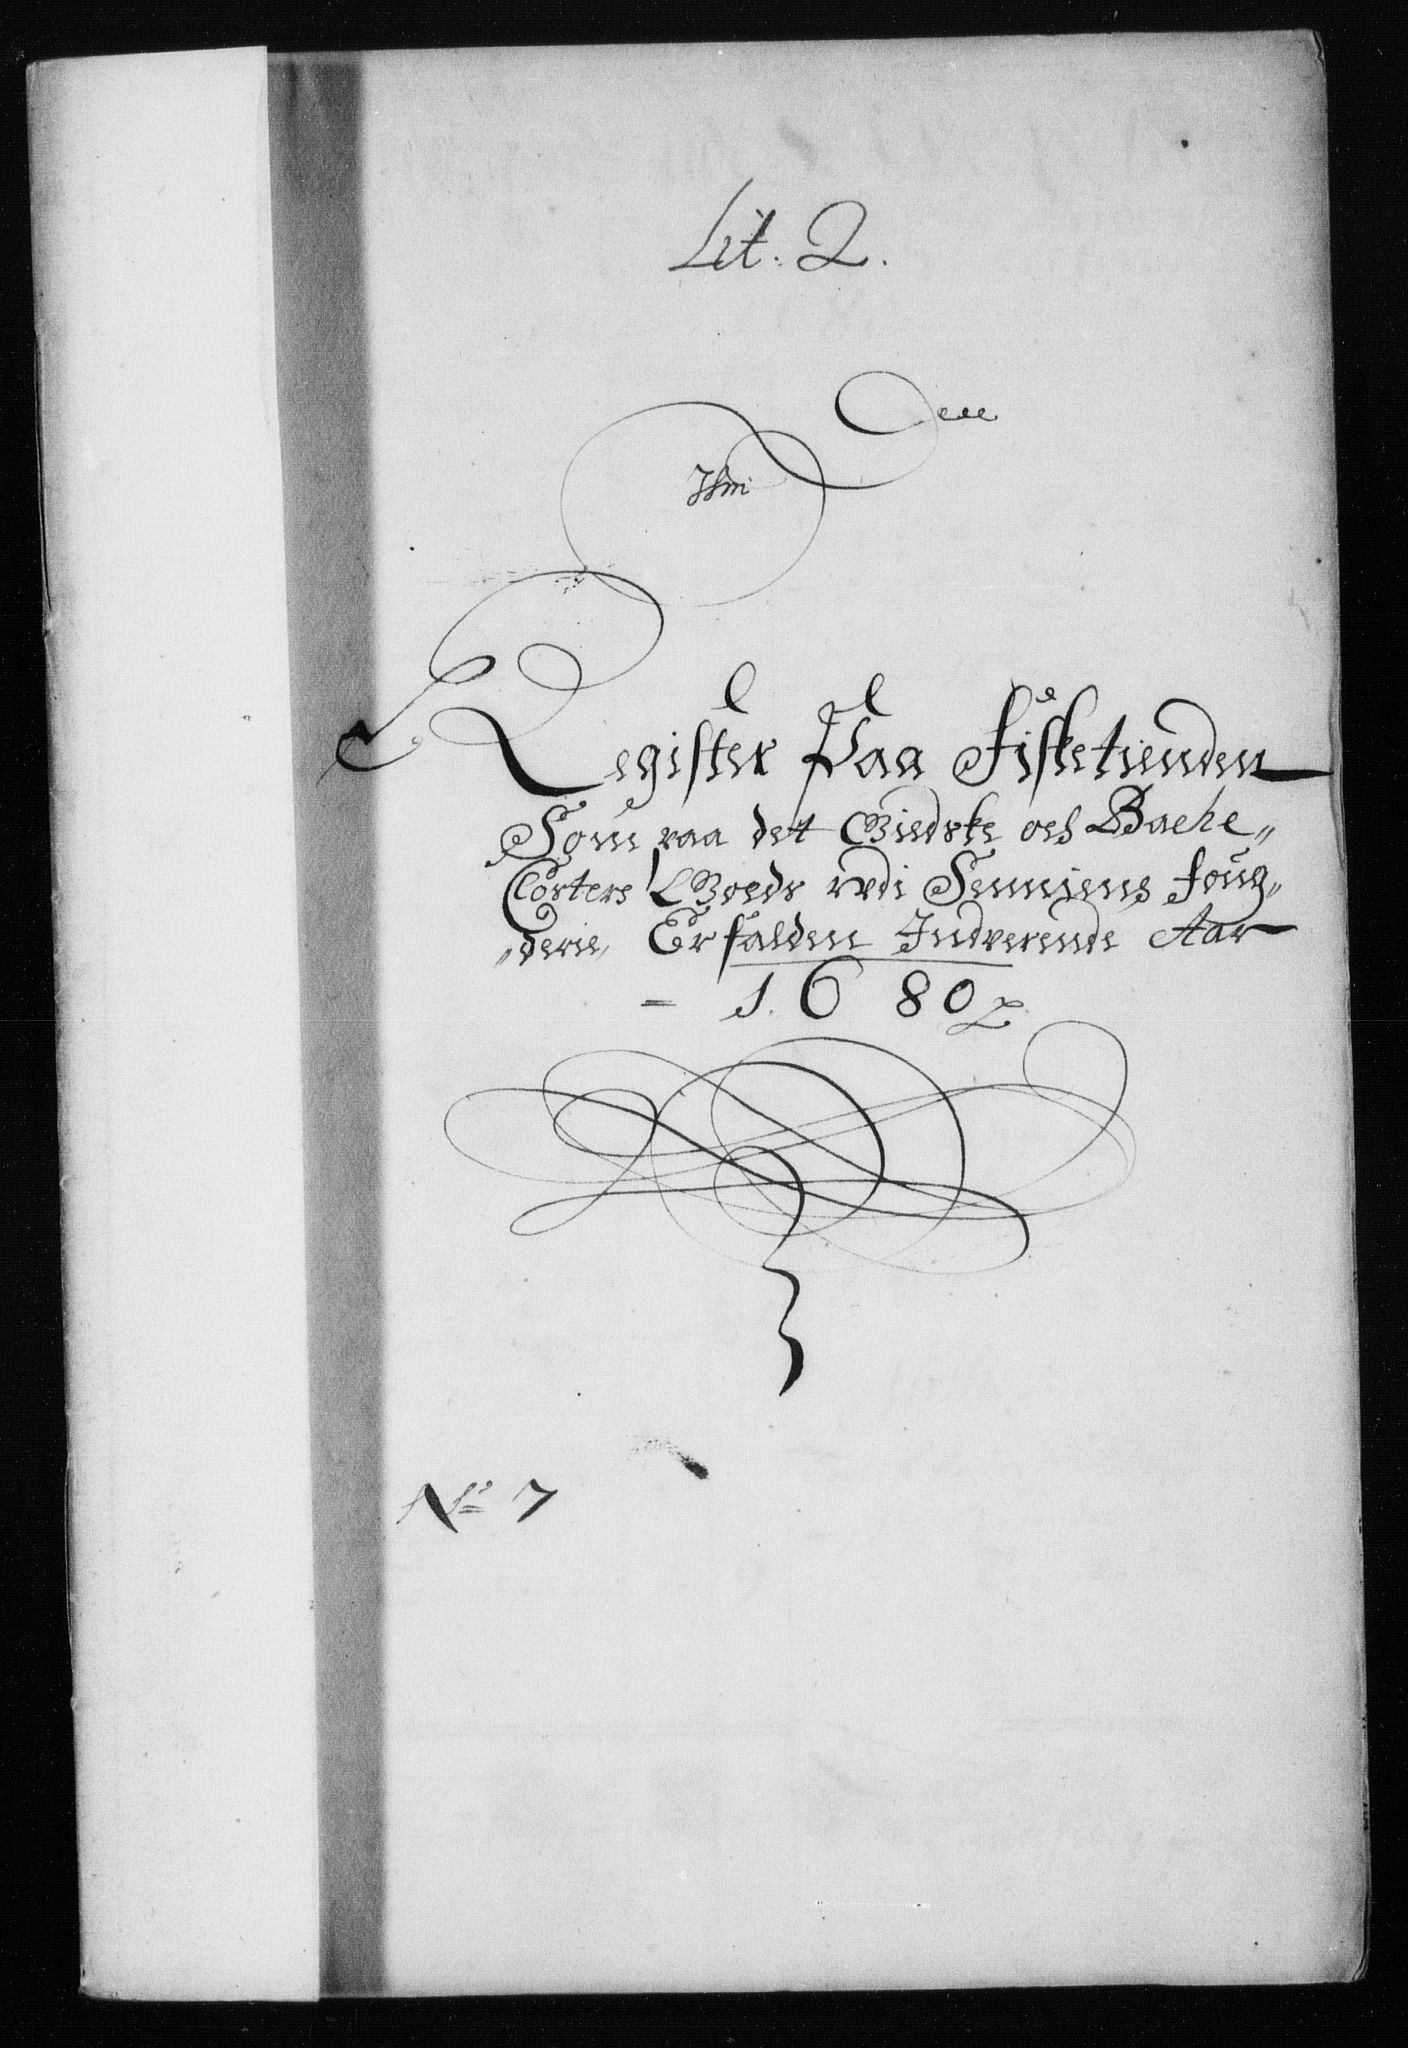 Lit: Q.
Register Paa Fisketienden
Som paa det Giedske och Bache„
Closters Goeds udi Senniens foug„
„derie, Erfalden Indverende Aar
1680
No 7